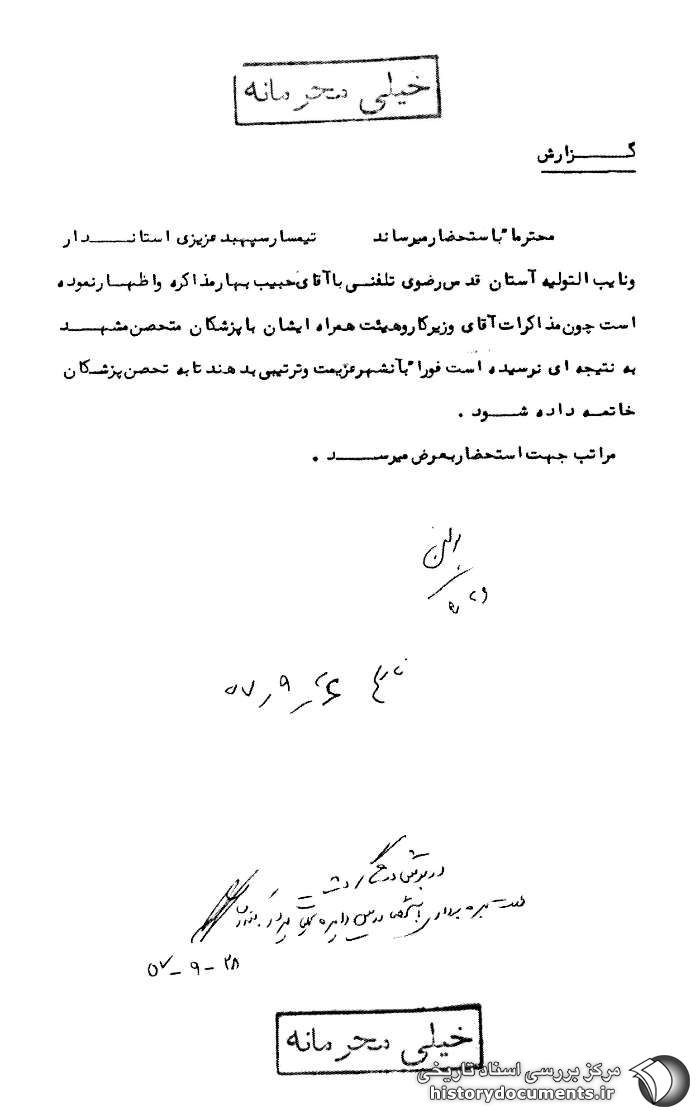 خیلی محرمانه
گـــــزارش
محترما" باستحضار میرساند تیمسار سپهبد عزیزی استانـــدار
و نایب التولیه آستان قدس رضوی تلفنـی با آقای حبیب بهار مذاکره و اظهار نموده
است چون مذاکرات آقای وزیر کار و هیئت همراه ایشان با پزشکان متحصن مشهـــد
به نتیجه ای نرسیده است فورا" بآنشهر عزیمت و ترتیبی بدهند تا به تحصن پزشکان
خاتمه داده شـــود .
مراتب جهت استحضار بعرض میرســـد .
تاریخ
۵۷-۹-۲۸
خیلی محرمانه
مرکز بررسی اسناد تاریخی
historydocuments.ir